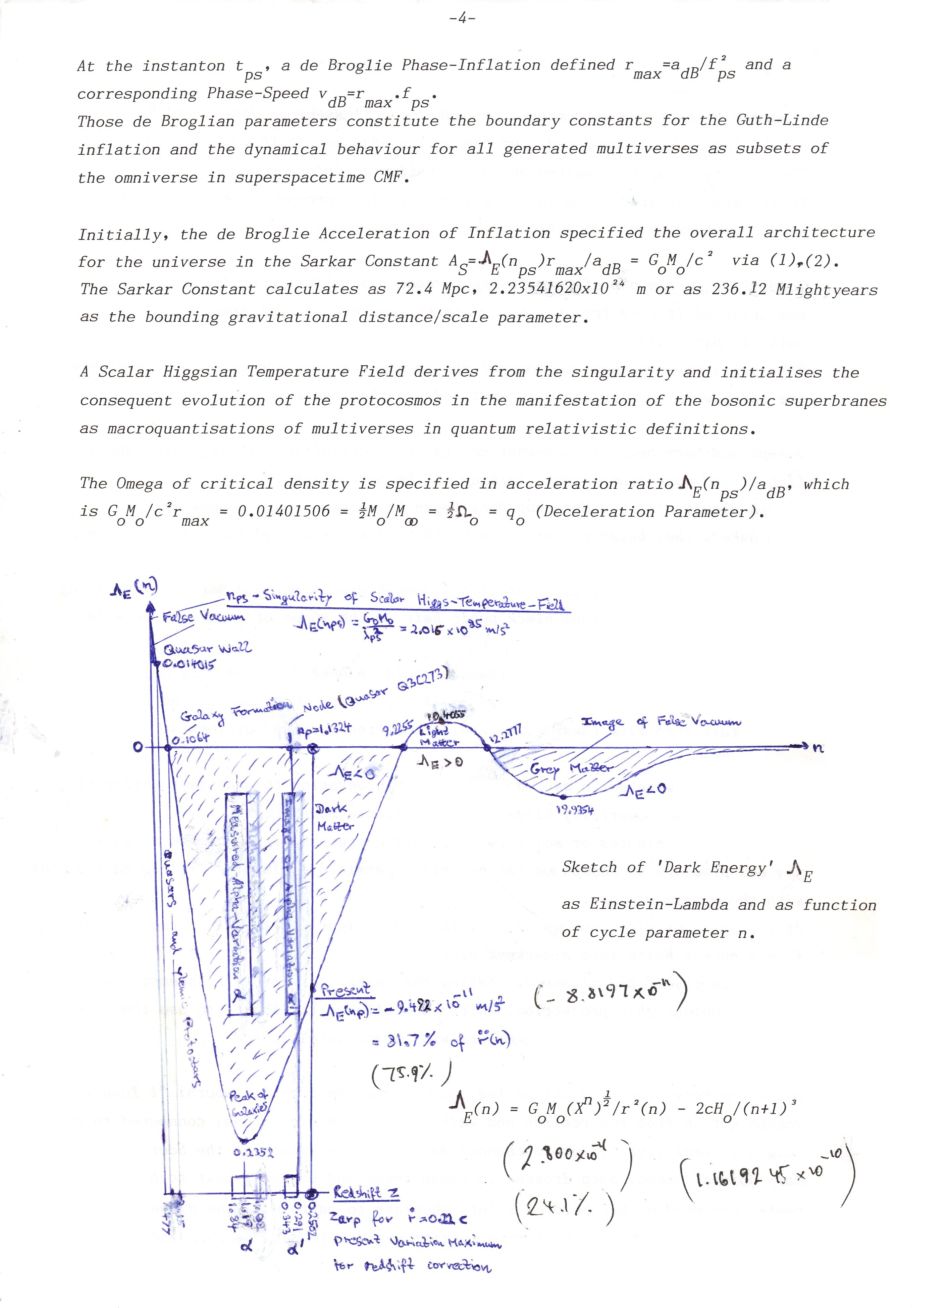 -4-
At the instanton t_ps, a de Broglie Phase-Inflation defined r_max=a_dB/f²_ps and a
corresponding Phase-Speed v_dB=r_max.f_ps.
Those de Broglian parameters constitute the boundary constants for the Guth-Linde
inflation and the dynamical behaviour for all generated multiverses as subsets of
the omniverse in superspacetime CMF.
Initially, the de Broglie Acceleration of Inflation specified the overall architecture
for the universe in the Sarkar Constant A_S=Λ_E(n_ps)r_max/a_dB = G_oM_o/c² via (1),(2).
The Sarkar Constant calculates as 72.4 Mpc, 2.23541620x10²⁴ m or as 236.12 Mlightyears
as the bounding gravitational distance/scale parameter.
A Scalar Higgsian Temperature Field derives from the singularity and initialises the
consequent evolution of the protocosmos in the manifestation of the bosonic superbranes
as macroquantisations of multiverses in quantum relativistic definitions.
The Omega of critical density is specified in acceleration ratio Λ_E(n_ps)/a_dB, which
is G_oM_o/c²r_max = 0.01401506 = ½M_o/M_∞ = ½Ω_o = q_o (Deceleration Parameter).
Λ_E(n)
nps - Singularity of Scalar Higgs-Temperature-Field
False Vacuum
Λ_E(nps) = G_oM_o/λ²_ps = 2.015 x 10⁸⁵ m/s²
Quasar Wall
0.014015
Galaxy Formation
Node (Quasar Q3C273)
n_p=1.1324
0.1064
9.2255
10.4055
Light Matter
12.2777
Image of False Vacuum
0
n
Λ_E<0
Λ_E>0
Grey Matter
Λ_E<0
19.9354
Dark
Matter
Measured Alpha-Variation α
Image of Alpha-Variation α'
Quasars and ylemic Protostars
Sketch of 'Dark Energy' Λ_E
as Einstein-Lambda and as function
of cycle parameter n.
Present
Λ_E(n_p) = -9.422 x 10⁻¹¹ m/s²
(- 8.8197x10⁻¹¹)
= 31.7% of r̈(n)
(75.9%)
Peak of
Galaxies
Λ_E(n) = G_oM_o(Xⁿ)^½/r²(n) - 2cH_o/(n+1)³
0.2352
(1.1619245 x10⁻¹⁰)
(24.1%)
Redshift z
7.477
1.84
1.19
0.343
0.291
0.2502
α
α'
Zarp for ṙ=0.22c
present Variation Maximum
for redshift correction